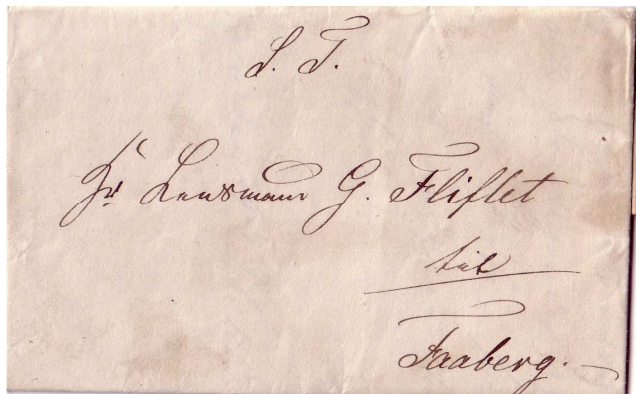 S. T.
Hr Lensmand G. Fliflet
til
Faaberg.